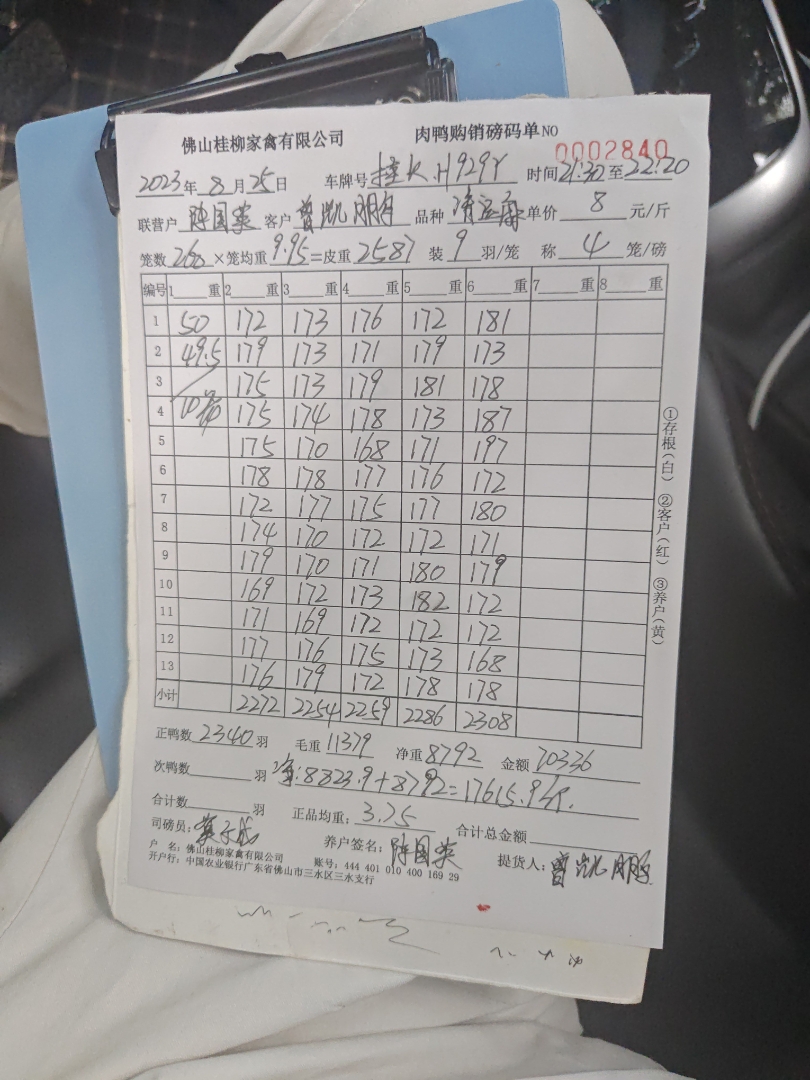 佛山桂柳家禽有限公司 肉鸭购销磅码单NO 0002840
2023年8月25日 车牌号桂K.H929Y 时间21:30至22:20
联营户 陈国英 客户 曾凯鹏 品种 单价 8 元/斤
笼数 260 ×笼均重 9.95 =皮重 2587 装 9 羽/笼 称 4 笼/磅
编号 1 重 2 重 3 重 4 重 5 重 6 重 7 重 8 重
1 50 172 173 176 172 181
2 49.5 179 173 171 179 173
3 175 173 179 181 178
4 10笼 175 174 178 173 187
5 175 170 168 171 197
6 178 178 177 176 172
7 172 177 175 177 180
8 174 170 172 172 171
9 179 170 171 180 179
10 169 172 173 182 172
11 171 169 172 172 172
12 177 176 175 173 168
13 176 179 172 178 178
小计 2272 2254 2259 2286 2308
正鸭数 2340 羽 毛重 11379 净重 8792 金额 70336
次鸭数 羽 净:8823.9+8792=17615.9斤.
合计数 羽 正品均重: 3.75 合计总金额
司磅员: 养户签名: 陈国英 提货人: 曾凯鹏
户 名: 佛山桂柳家禽有限公司 账号: 444 401 010 400 169 29
开户行: 中国农业银行广东省佛山市三水区三水支行
①存根(白) ②客户(红) ③养户(黄)